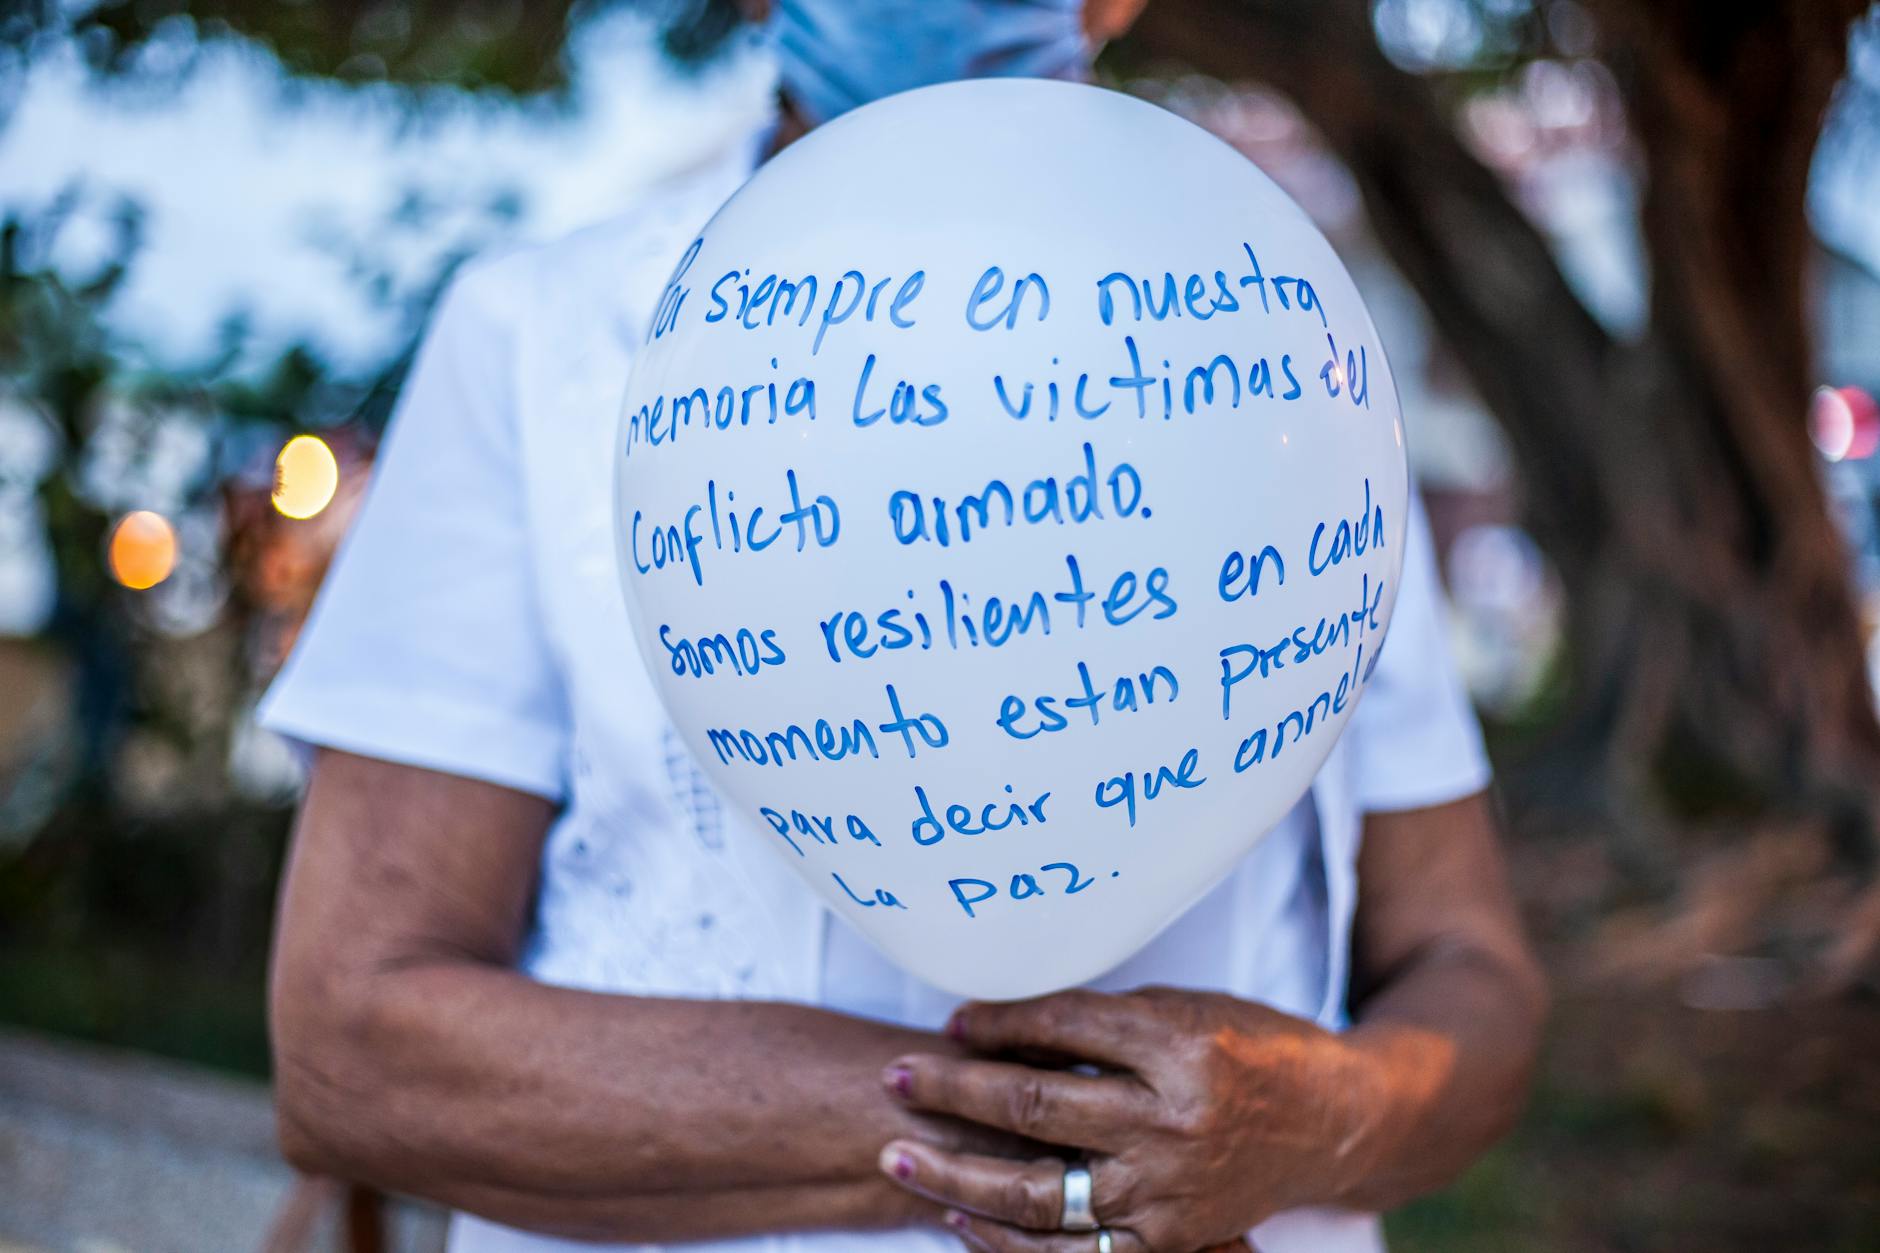 Por siempre en nuestra
memoria las victimas del
conflicto armado.
somos resilientes en cada
momento estan presente
para decir que
la paz.